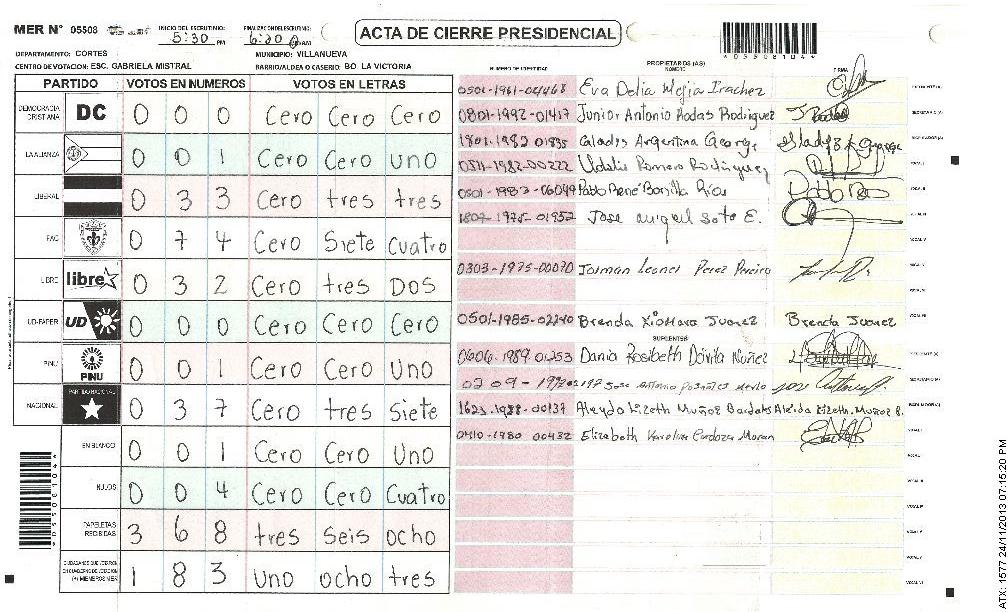 MER N° 05508 INICIO DEL ESCRUTINIO: 5:30 PM FINALIZACION DEL ESCRUTINIO: 6:20 AM
ACTA DE CIERRE PRESIDENCIAL
*05508104*
DEPARTAMENTO: CORTES MUNICIPIO: VILLANUEVA
CENTRO DE VOTACION: ESC. GABRIELA MISTRAL BARRIO/ALDEA O CASERIO: BO. LA VICTORIA
PARTIDO VOTOS EN NUMEROS VOTOS EN LETRAS
DEMOCRACIA CRISTIANA DC 0 0 0 Cero Cero Cero
LA ALIANZA 0 0 1 Cero Cero uno
LIBERAL 0 3 3 Cero tres tres
FAC 0 7 4 Cero Siete cuatro
LIBRE libre 0 3 2 Cero tres Dos
UD-FAPER UD 0 0 0 Cero Cero Cero
PINU PINU 0 0 1 Cero Cero Uno
NACIONAL PARTIDO NACIONAL 0 3 7 Cero tres Siete
EN BLANCO 0 0 1 Cero Cero Uno
NULOS 0 0 4 Cero Cero Cuatro
PAPELETAS RECIBIDAS 3 6 8 tres seis ocho
CIUDADANOS QUE VOTARON EN CUADERNO DE VOTACION (+) MIEMBROS MER 1 8 3 uno ocho tres
NUMERO DE IDENTIDAD PROPIETARIOS (AS) NOMBRE FIRMA
0501-1961-04468 Eva Delia Mejia Irachez
0801-1992-01417 Junior Antonio Rodas Rodriguez
1801-1982 01835 Argentina George
0511-1982-00222 Romero Rodriguez
0501-1983-06049 Pablo René Bonilla Ríos
1807-1975-01952 Jose Miguel Soto E.
0303-1975-00070 Leonel Perez Pereira
0501-1985-02240 Brenda Xiomara Juarez Brenda Juarez
SUPLENTES
0606-1989-01253 Dania Rosibeth Dávila Nuñez
0209 Jose Antonio
1623-1988-00137 Aleyda Lizeth Muñoz Aleida Lizeth. Muñoz B.
0410-1980 00432 Elizabeth Karolina Cardoza Moran
*05508104*
ATX: 1577 24/11/2013 07:15:20 PM